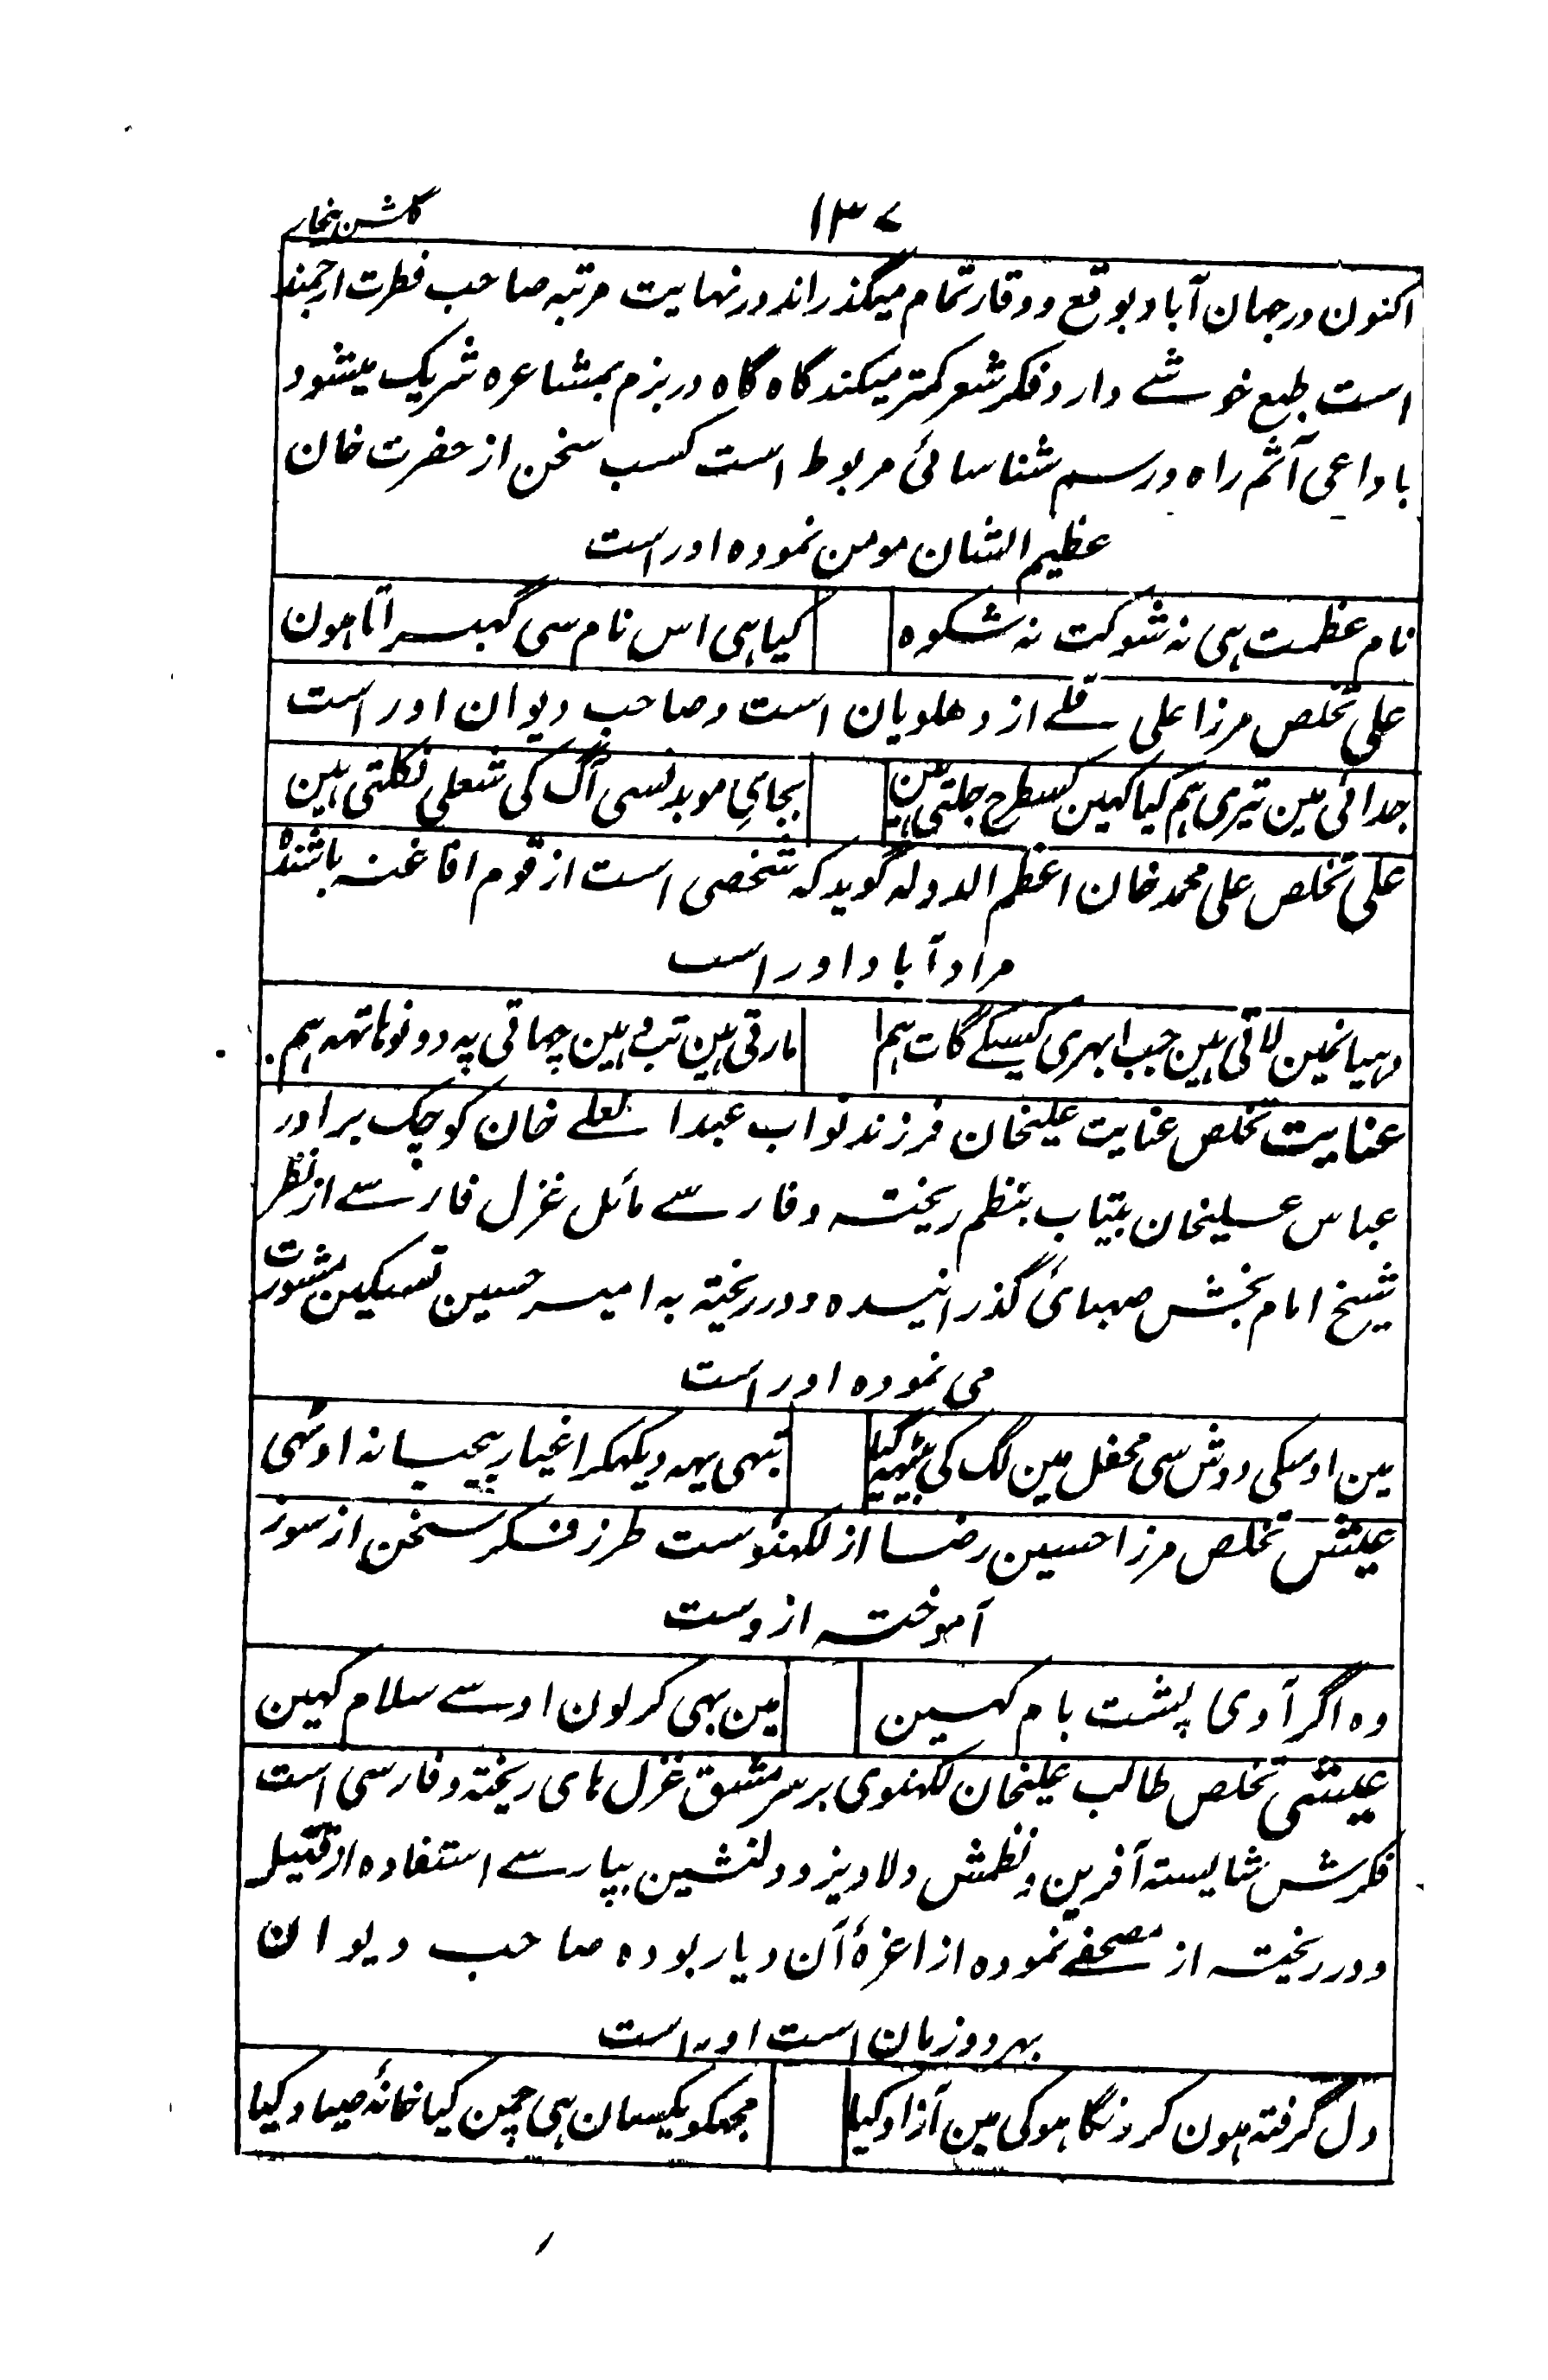 ۱۳۷
گلشن بیخار
اکنون در جهان آباد بوقع و وقار تمام میگذراند در نهایت مرتبه صاحب فطرت ارجمند
است طبع خوشے دارد فکر شعر کمتر میکند گاه گاه در بزم مشاعره شریک میشود
با داعی آثم راه و رسم شناسائی مربوط است کسب سخن از حضرت خان
عظیم الشان مومن نموده اوراست
نام عظمت ہی نہ شوکت نہ شکوہ کیا ہی اس نام سی گہبراتا ہون
علی تخلص مرزا علی قلے از دهلویان است و صاحب دیوان اوراست
جدائی مین تیری ہم کیا کہین کسطرح جلتی ہین بجای مو بدنسی آگ کی شعلی نکلتی ہین
علی تخلص علی محمد خان اعظم الدوله گوید که شخصی است از قوم افاغنه باشندہ
مراد آباد اوراست
دہیانمین لاتی ہین جب ابہری کیسکے گات ہم مارتی ہین تب ہین چہاتی پہ دونو ہاتہہ ہم
عنایت تخلص عنایت علیخان فرزند نواب عبدالعلے خان کوچک برادر
عباس علیخان بیتاب بنظم ریخته و فارسے مائل غزل فارسے از نظر
شیخ امام بخش صہبائی گذرانیده و در ریخته به امیر حسین تسکین مشورت
می نموده اوراست
مین اوسکی دوش سی محفل مین لگ کی بیٹہہ گیا تبہی یہہ دیکہکر اغیار بیحیا نہ اوٹہی
عیش تخلص مرزا حسین رضا از لکہنؤست طرز فکر سخن از سوز
آموخته از وست
وہ اگر آوی پشت بام کہین مین بہی کرلون اوسے سلام کہین
عیشی تخلص طالب علیخان لکہنوی بر سر مشق غزل ہای ریخته و فارسی است
فکرش شایسته آفرین و نظمش دلاویز و دلنشین بپارسے استفاده از قتیل
و در ریخته از مصحفے نموده از اعزهٔ آن دیار بوده صاحب دیوان
بهر دو زبان است اوراست
دل گرفتہ ہون کرونگا ہوکی مین آزاد کیا مجہکو یکسان ہی چمن کیا خانۂ صیاد کیا